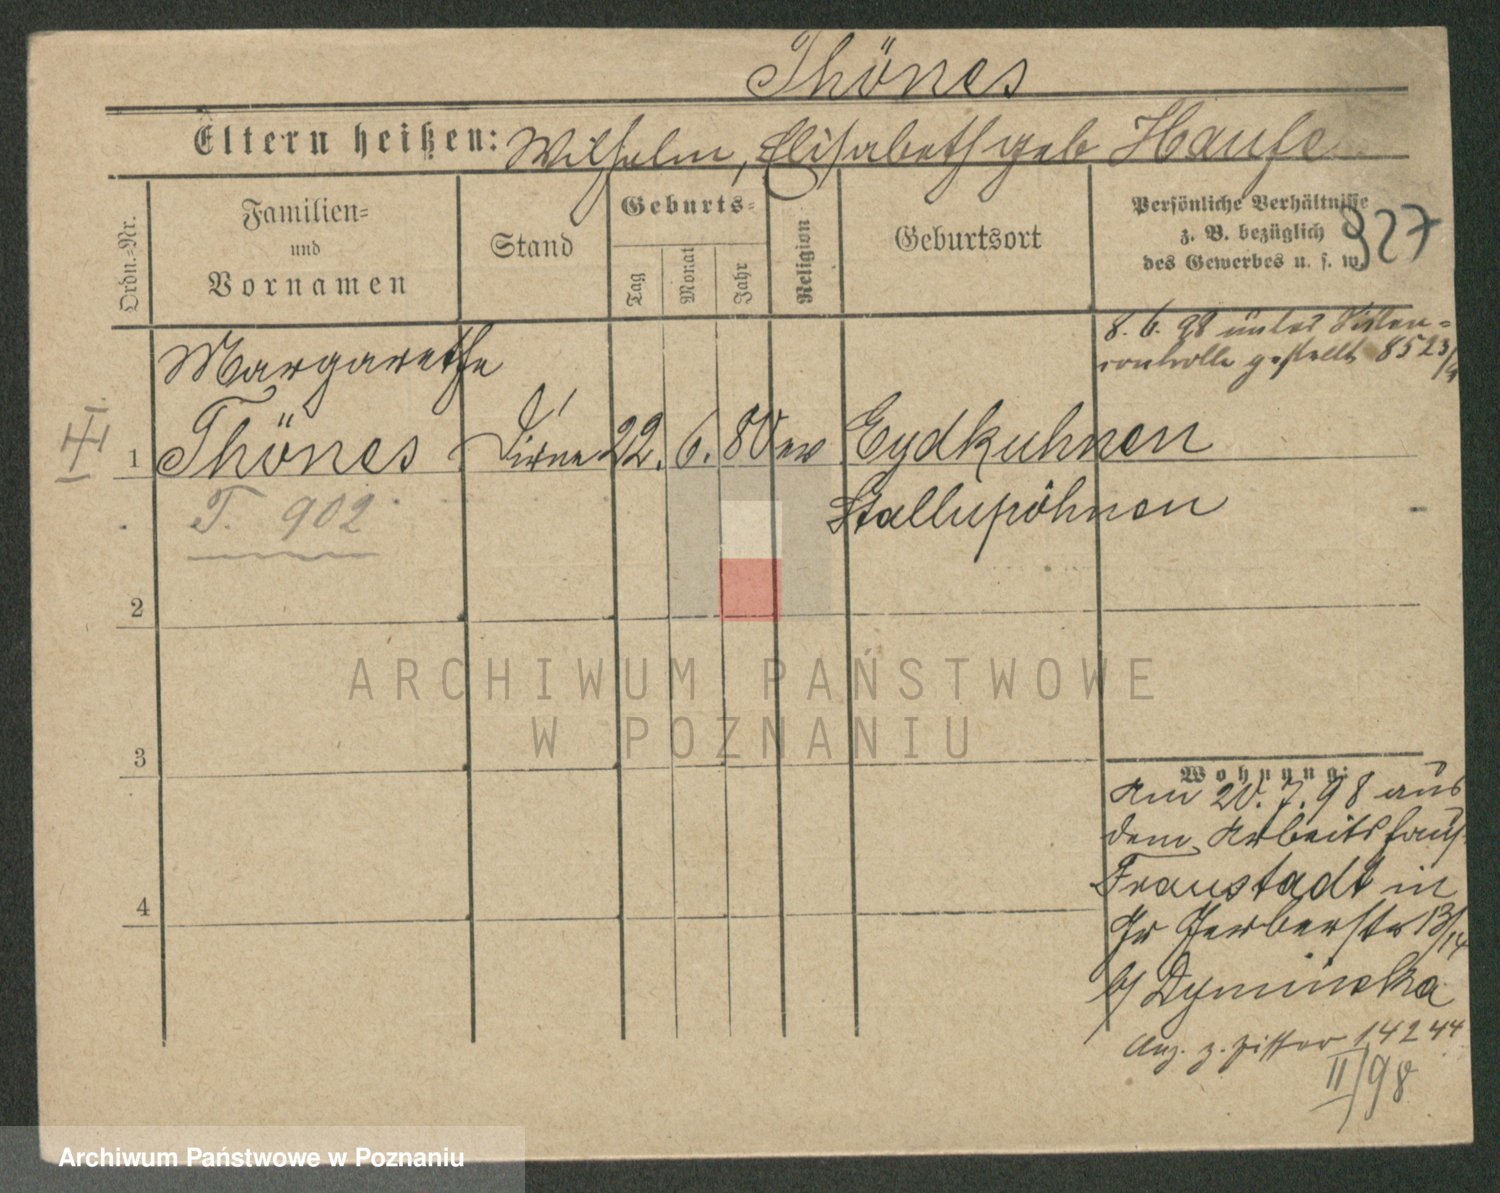 Thönes
Eltern heißen: Wilhelm, Elisabeth geb Haufe
Ordn.-Nr.
Familien-
und
Vornamen
Stand
Geburts-
Tag
Monat
Jahr
Religion
Geburtsort
Persönliche Verhältnisse
z. B. bezüglich
des Gewerbes u. s. w.
927
8. 6. 98 unter Sitten-
controlle gestellt 8523/
Margarethe
1 Thönes Dirne 22. 6. 80 ev Eydkuhnen
T. 902
Stallupöhnen
2
3
4
Wohnung:
Am 20. 7. 98 aus
dem Arbeitshaus
Fraustadt in
Gr Gerberstr 13/14
b/ Dyminska
Anz. z. Ziffer 14244
II/98
ARCHIWUM PAŃSTWOWE
W POZNANIU
Archiwum Państwowe w Poznaniu